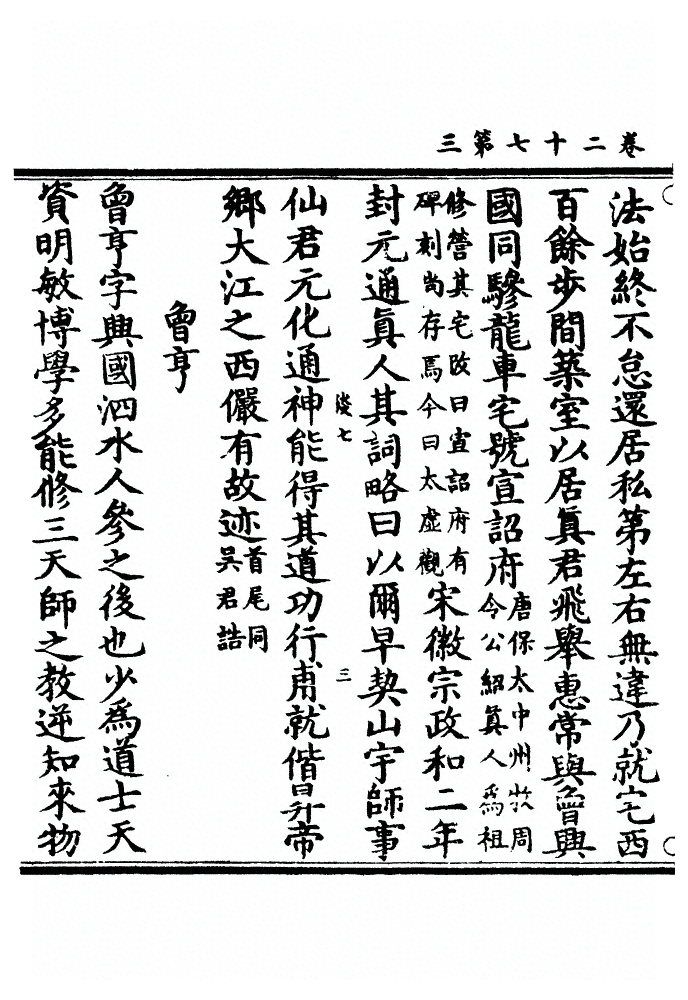 卷二十七第三
法始終不怠還居私第左右無違乃就宅西
百餘步間築室以居眞君飛舉惠常與曾興
國同驂龍車宅號宣詔府唐保太中州牧周
令公紹眞人爲祖
修營其宅改曰宣詔府有
碑刻尚存焉今曰太虛觀宋徽宗政和二年
封元通眞人其詞略曰以爾早契山宇師事
七 三
仙君元化通神能得其道功行甫就偕昇帝
鄉大江之西儼有故迹首尾同
吳君誥
曾亨
曾亨字興國泗水人參之後也少爲道士天
資明敏博學多能修三天師之教逆知來物